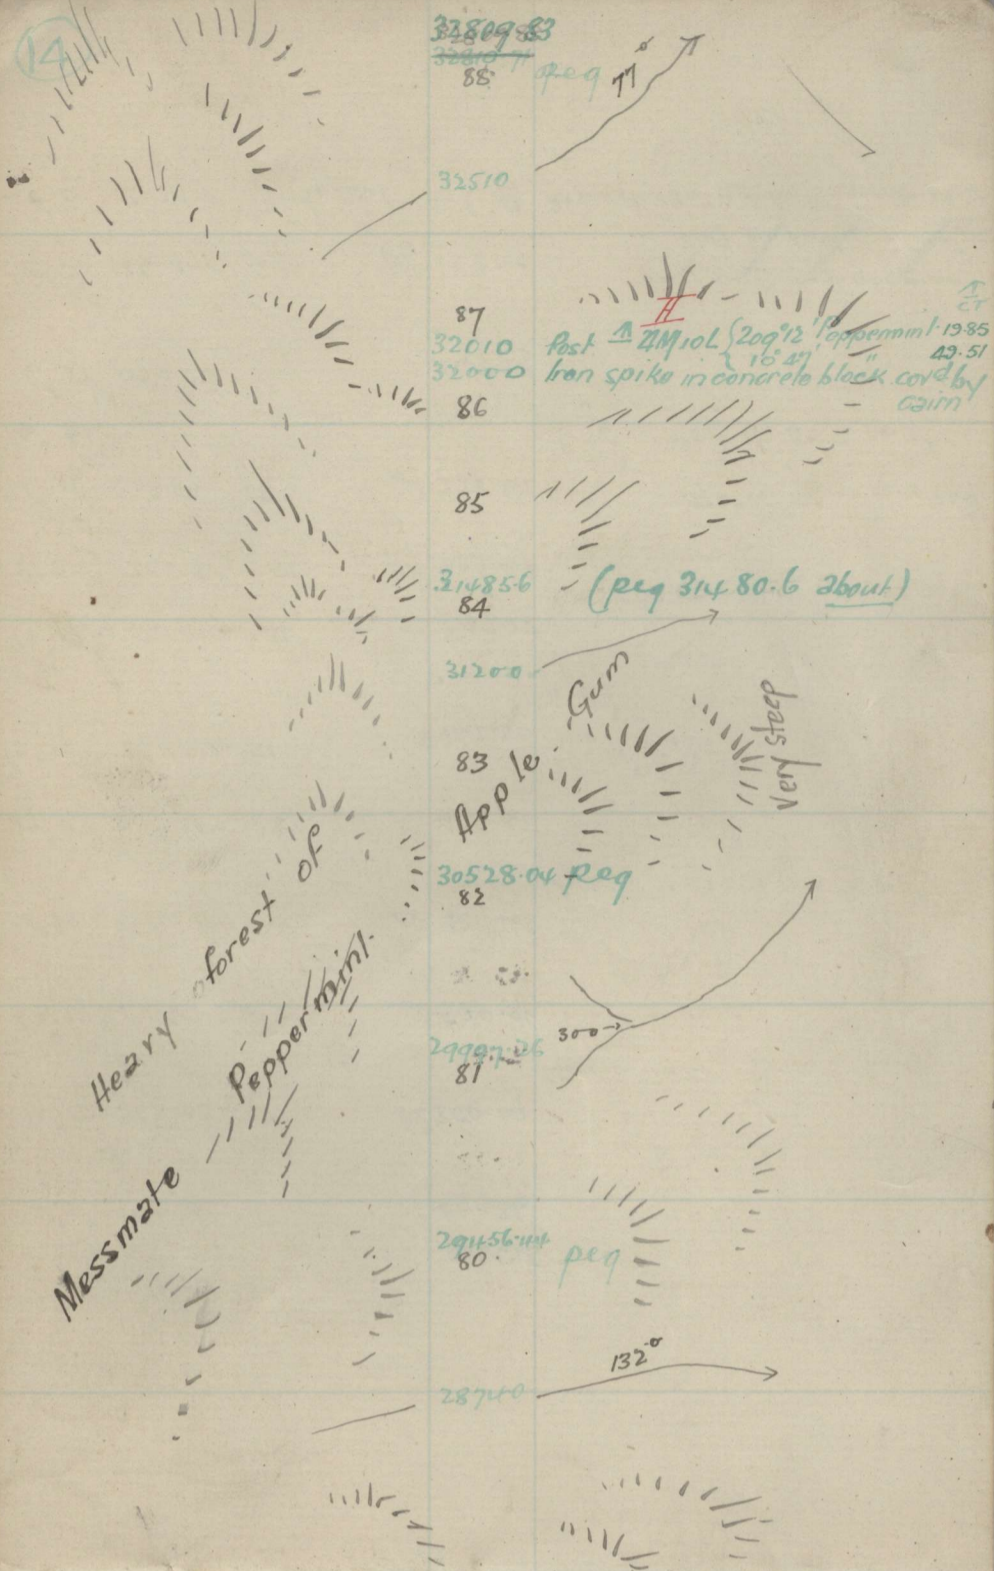 14
32809.83
88 peg 77°
32510
87
H
32010 Post 4M10L 209°12' Peppermint 19.85
10°47' " 49.51
32000 Iron spike in concrete block cov'd by
cairn
86
85
31485.6 (peg 31480.6 about)
84
31200
Apple Gum
Very steep
83
30528.04 Peg
82
Heavy forest of
Messmate Peppermint.
300→
81
29456.44 peg
80.
132°
28740